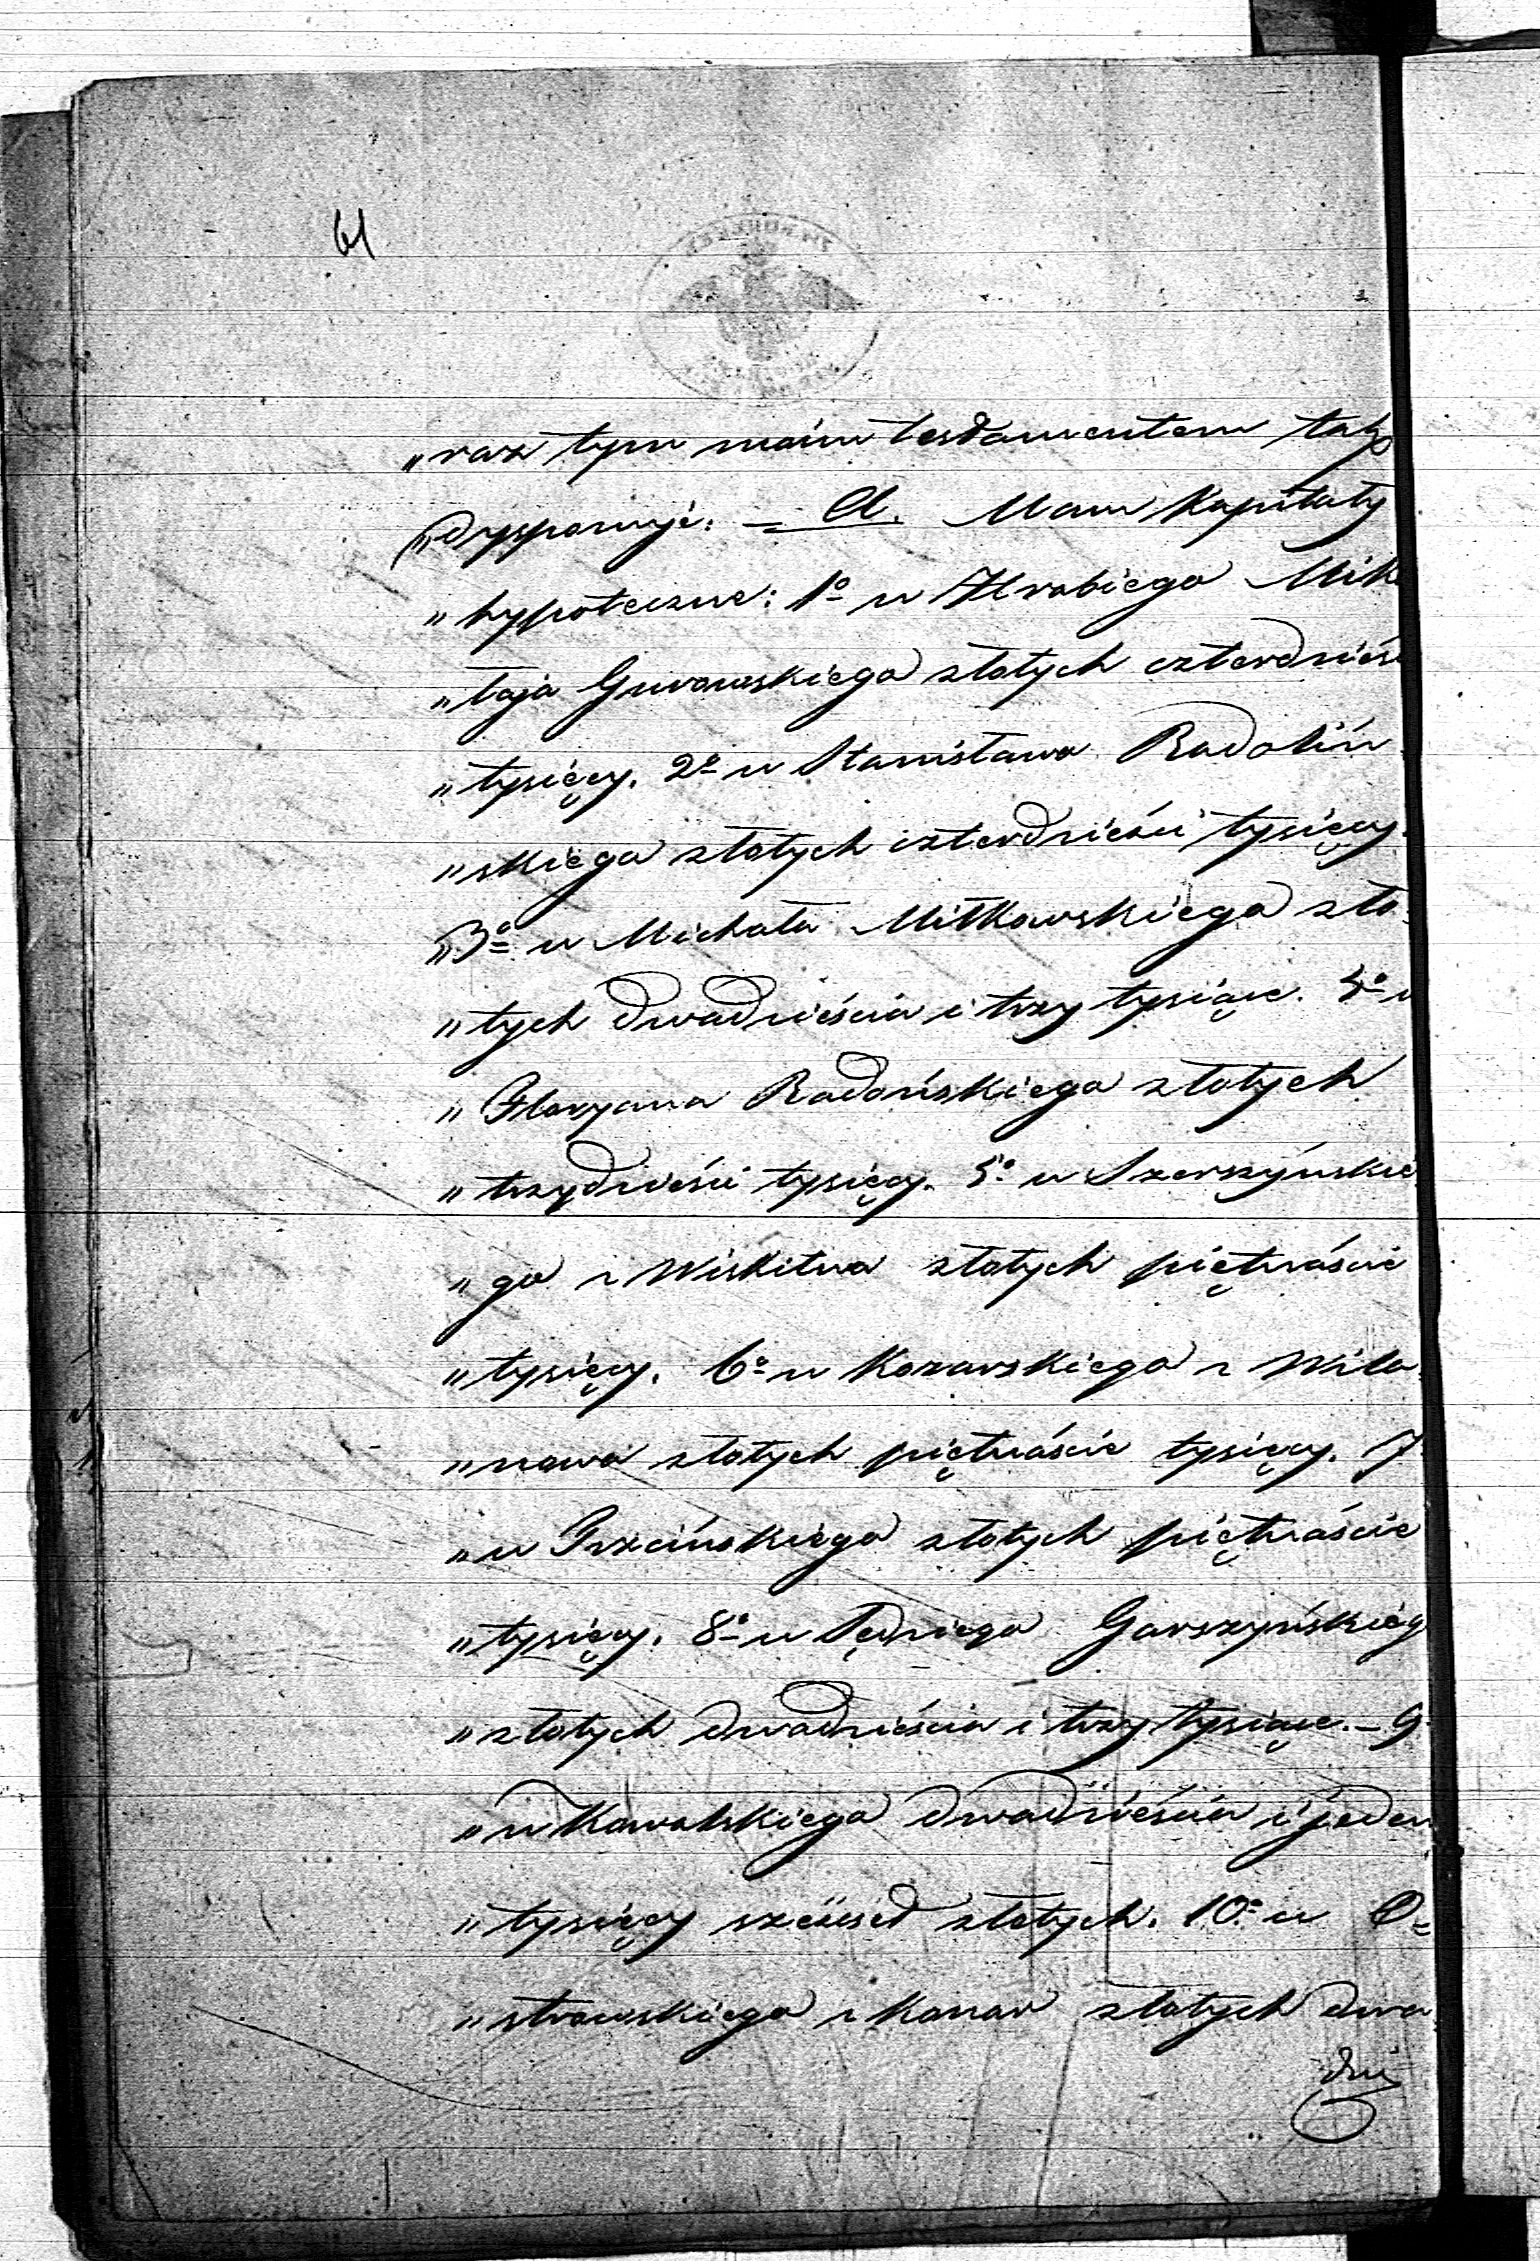 61
„raz tym moim testamentem tak
„dysponuję: = A. Mam kapitały
„hypoteczne: 1o u Hrabiego Miko
„łaja Gurowskiego złotych czterdzieści
„tysięcy. 2o u Stanisława Radoliń
„skiego złotych czterdzieści tysięcy.
„3o u Michała Miłkowskiego zło=
„tych dwadzieścia i trzy tysiące. 4o u
„Floryana Radońskiego złotych
„trzydzieści tysięcy. 5o u Szerszyńskie
„go z Wiskitna złotych piętnaście
„tysięcy. 6o u Kozarskiego z Wila
„nowa złotych piętnaście tysięcy. 7
„u Trzcińskiego złotych piętnaście
„tysięcy. 8o u Sędziego Garszyńskieg
„złotych dwadzieścia i trzy tysiące. – 9
„u Kowalskiego dwadzieścia i jeden
„tysięcy sześćset złotych. 10o u O=
„strowskiego z Konar złotych dwa
dzie